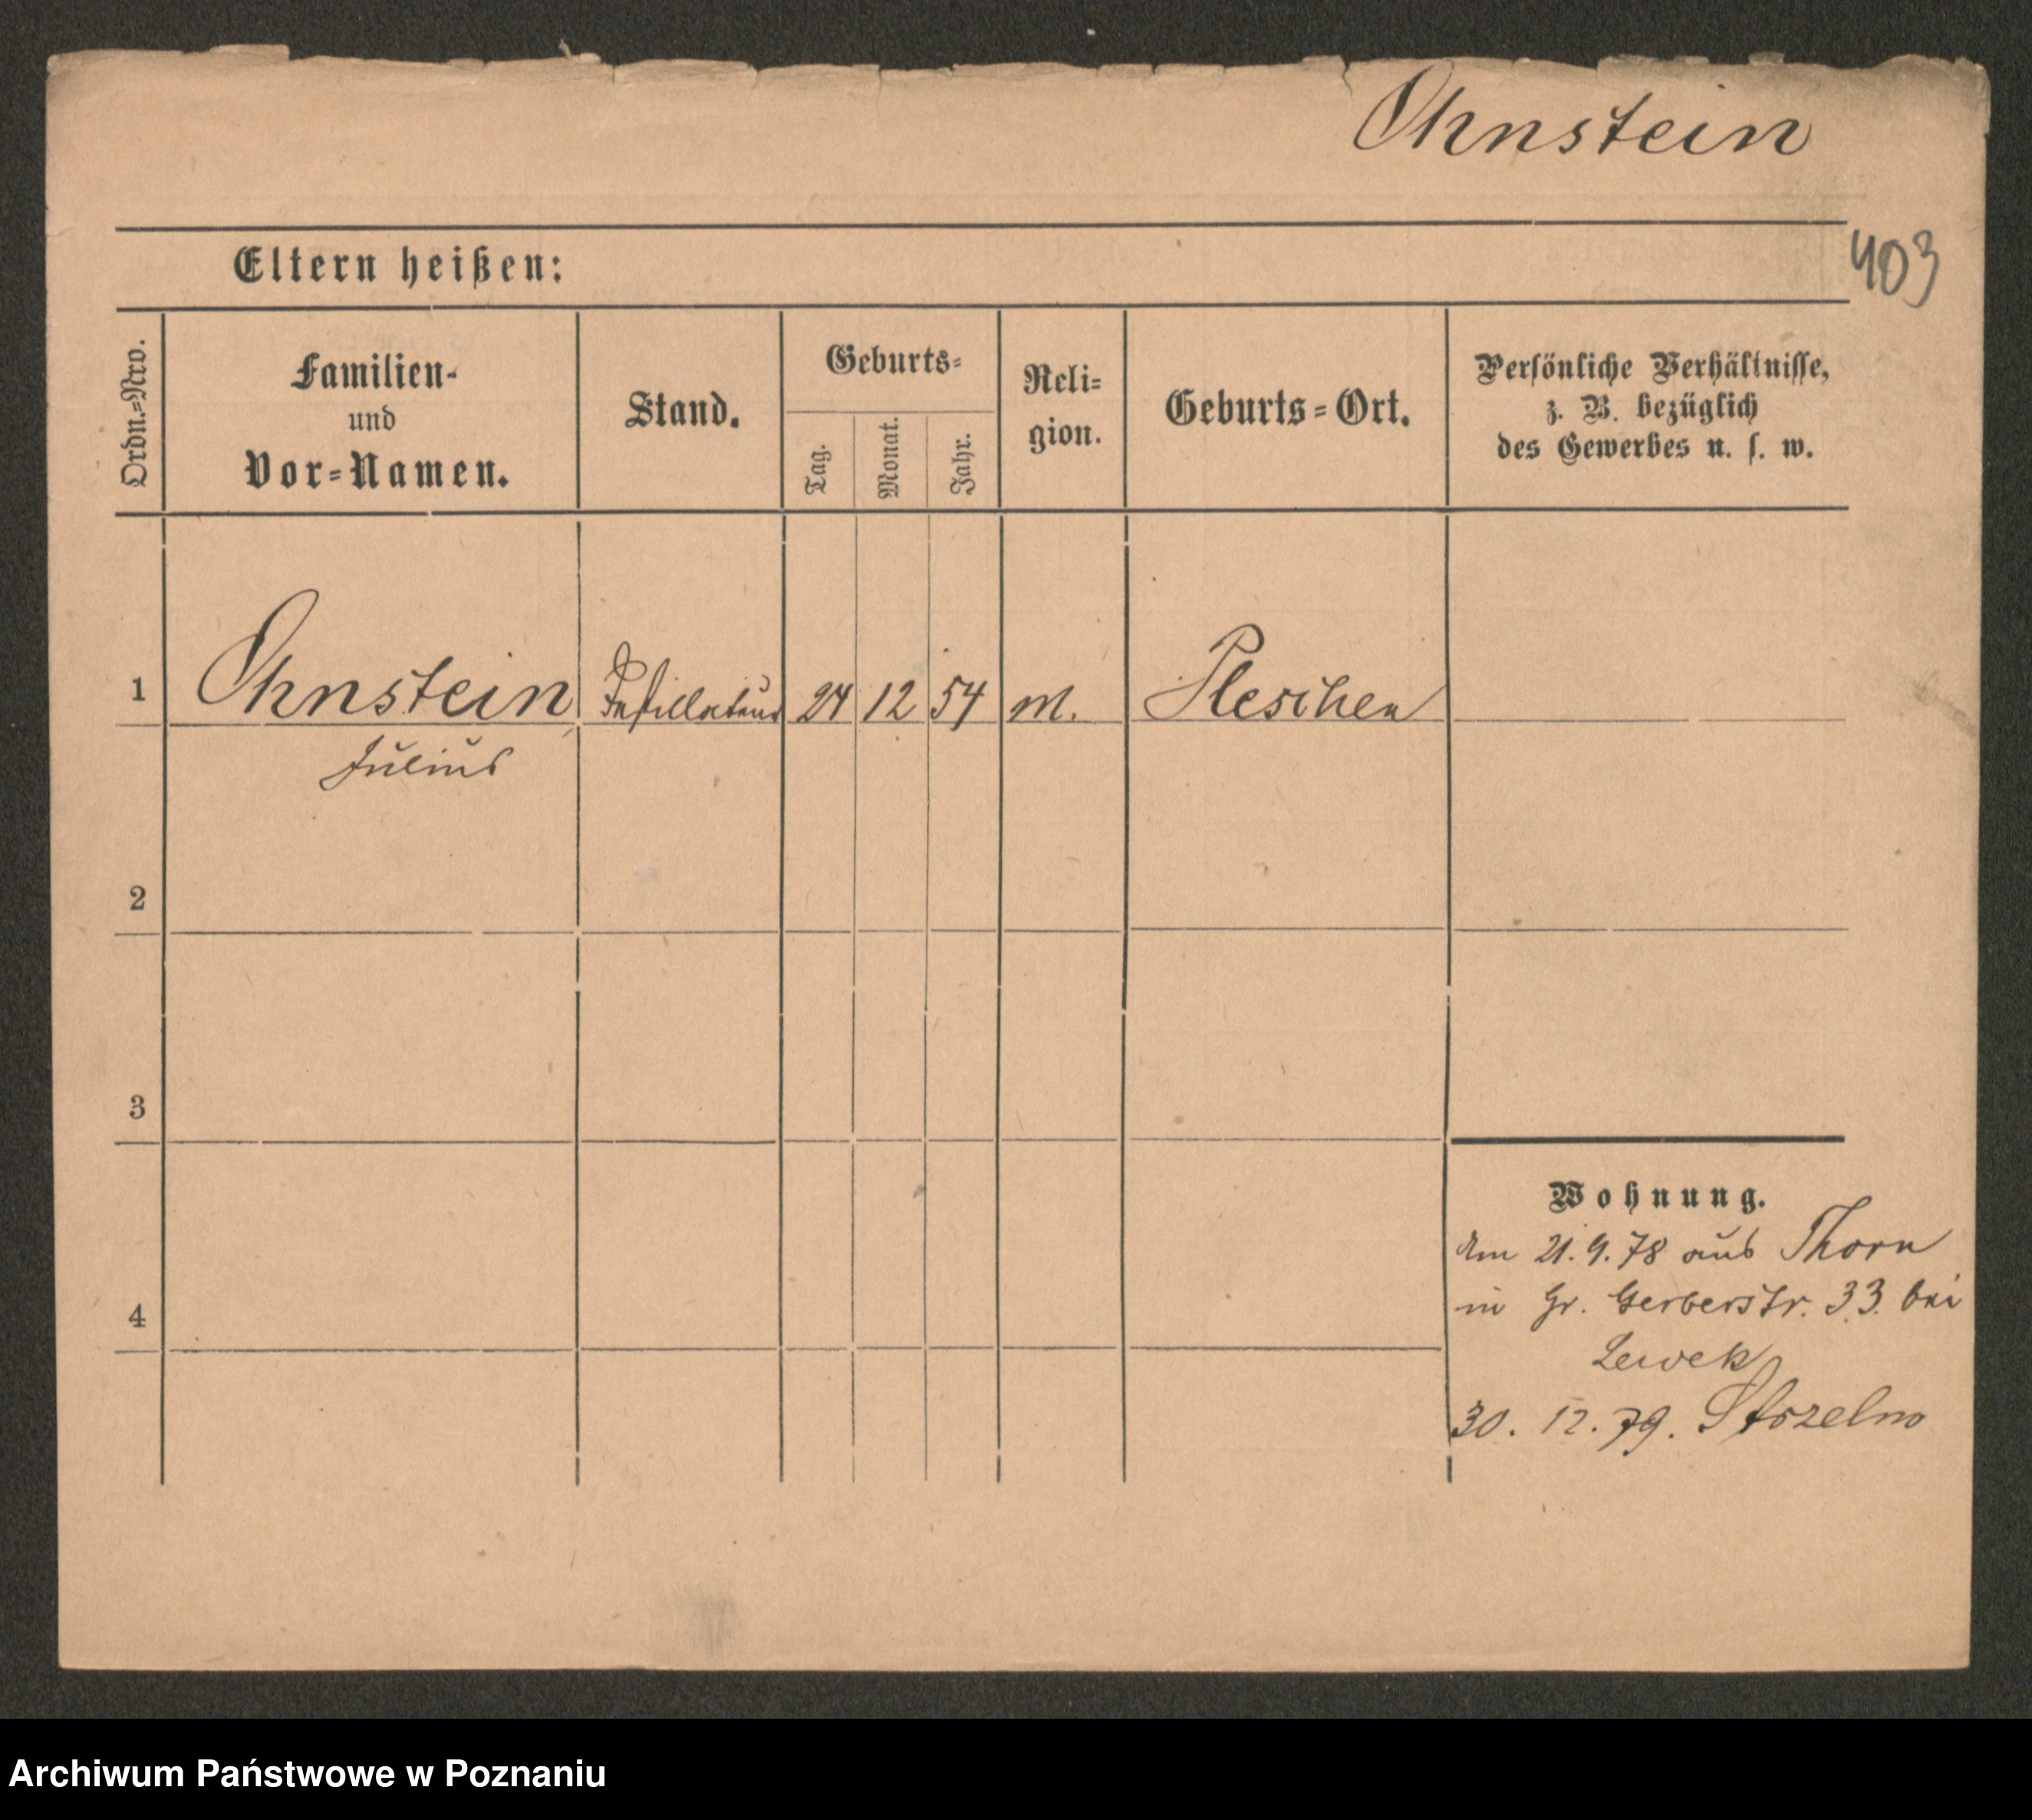 Ohnstein
403
Eltern heißen:
Ordn.=Nro.
Familien-
und
Vor=Namen.
Stand.
Geburts=
Tag.
Monat.
Jahr.
Reli=
gion.
Geburts=Ort.
Persönliche Verhältnisse,
z. B. bezüglich
des Gewerbes u. s. w.
1 Ohnstein 24 12 54 m. Pleschen
Julius
2
3
4
Wohnung.
Am 21. 9. 78 aus Thorn
in Gr. Gerberstr. 33. bei
Lewek
30. 12. 79. Strzelno
Archiwum Państwowe w Poznaniu